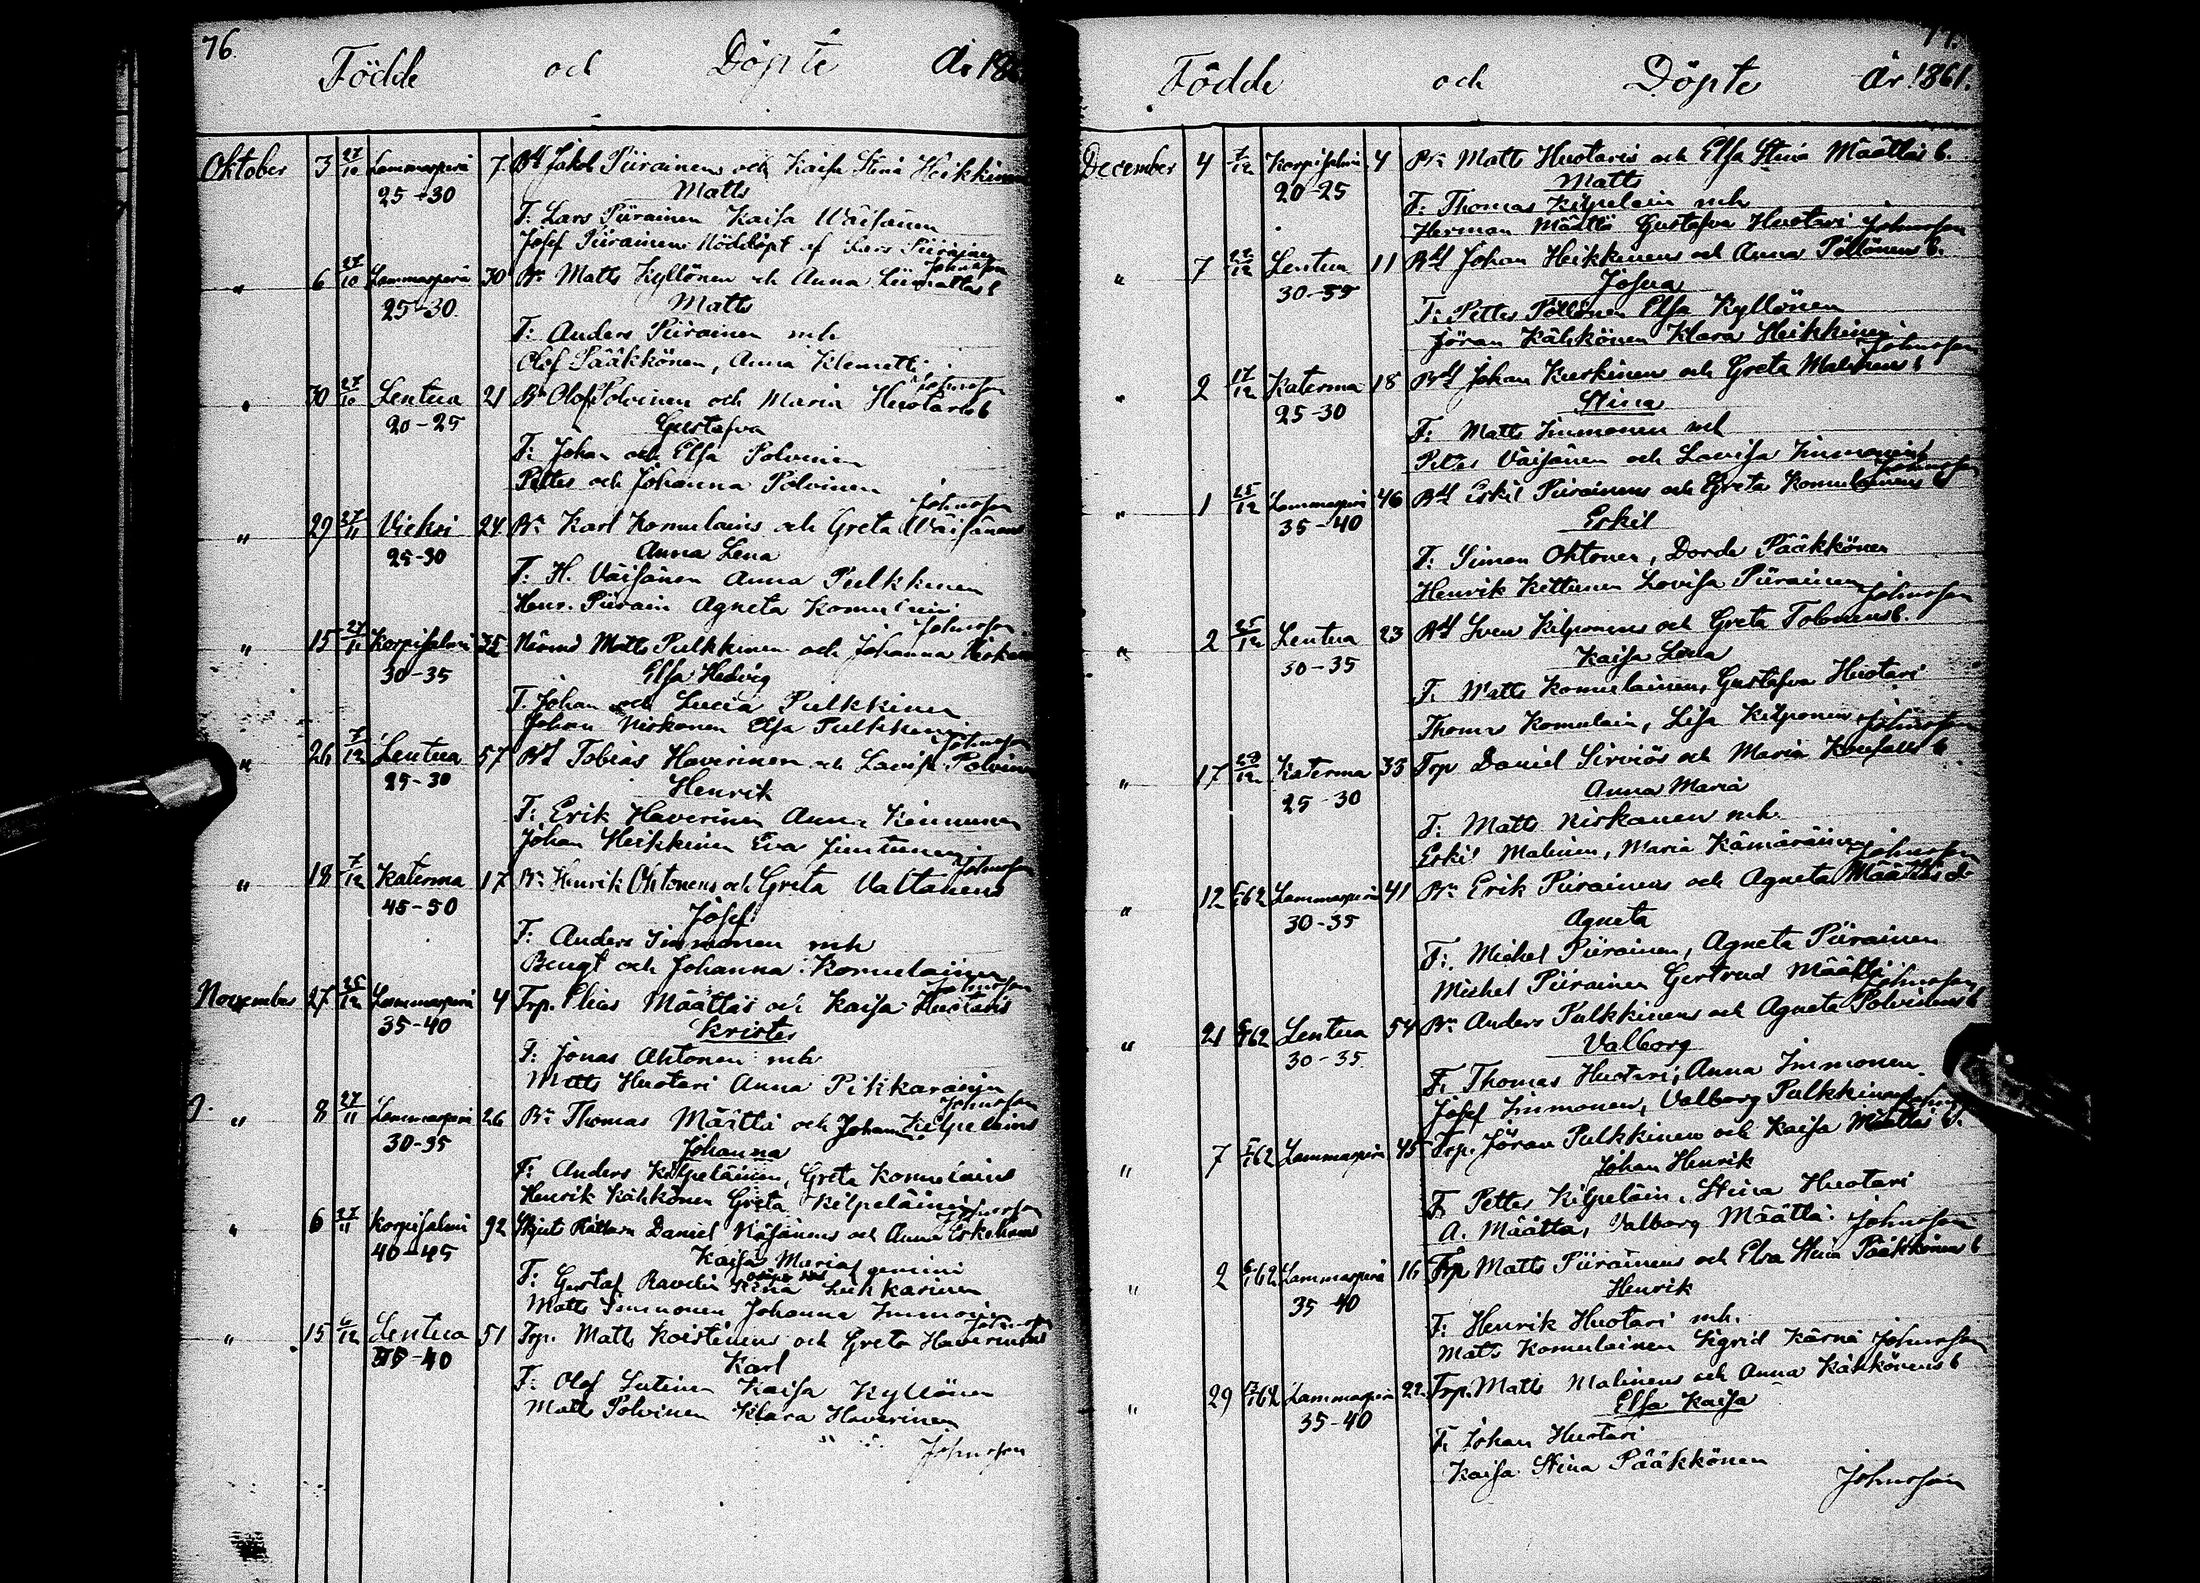 76.
Födde och Döpte År 186
Oktober 3 27/10 Lammasperä 7 Bd Jakob Piirainen och Kaisa Stina Heikkinen
25-30 Matts
F: Lars Piirainen Kaisa Wäisänen
Josef Piirainen Nöddöpt af Lars Piirainen
Johnsson
" 6 27/10 Lammasperä 30 Bn Matts Kyllönen och Anna Liimattas b
25-30 Matts
F: Anders Piirainen mh
Olof Pääkkönen, Anna Klemetti
Johnsson
" 30 27/10 Lentua 21 Bn Olof Polvinen och Maria Huotaris b
20-25 Gustafva
F: Johan och Elsa Polvinen
Petter och Johanna Polvinen
Johnsson
" 29 27/11 Vieksi 24 Bn Karl Komulains och Greta Wäisänens
25-30 Anna Lena
F: H. Väisänen Anna Pulkkinen
Henr. Piirain Agneta Komulain
Johnsson
" 15 27/11 Korpisalmi 35 Matts Pulkkinen och Johanna
30-35 Elsa Hedvig
F. Johan och Lucia Pulkkinen
Johan Niskanen Elsa Pulkkinen
Johnsson
" 26 7/12 Lentua 57 Bd Tobias Haverinen och Lovisa Polvinen
25-30 Henrik
F: Erik Haverinen Anna Kinnunen
Johan Heikkinen Eva Juntunen
Johnsson
" 18 7/12 Katerma 17 Bn Henrik Ohtonens och Greta Valtanens
45-50 Josef
F: Anders Immonen mh
Bengt och Johanna Komulainen
Johnsson
November 27 25/12 Lammasperä 4 Trp. Elias Määttäs och Kaisa Huotaris
35-40 Krister
F: Jonas Ahtonen mh
Matts Huotari Anna Pikkarainen
Johnsson
" 8 27/11 Lammasperä 26 Bn Thomas Määttä och Johanna Kilpeläins
30-35 Johanna
F: Anders Kilpeläinen, Greta Komulains
Henrik Kähkönen Greta Kilpeläinen
Johnsson
" 6 27/11 Korpisalmi 92 Skjuts Rättarn Daniel Näsänens och Anna Eskelinens
40-45 Kaisa Maria gemini
F: Gustaf Ravelin Stina Lukkarinen
Matts Immonen Johanna Immonen
Johnsson
" 15 6/12 Lentua 51 Trp. Matts Koistinens och Greta Haverinens
-40 Karl
F: Olof Lutinen Kaisa Kyllönen
Matts Polvinen Klara Haverinen
Johnsson
77.
Födde och Döpte År 1861.
December 4 7/12 Korpisalmi 4 Bn Matts Huotaris och Elsa Stina Määttäs b.
20-25 Matts
F: Thomas Kilpelain mh
Herman Määttä Gustafva Huotari Johnsson
" 7 22/12 Lentua 11 Bd Johan Heikkinens och Anna Pöllönens b.
30-35 Josua
F: Petter Pöllönen Elsa Kyllönen
Jöran Kähkönen Klara Heikkinen
Johnsson
" 2 17/12 Katerma 18 Bd Johan Kurkinens och Greta Malinens b
25-30 Stina
F: Matts Immonen mh
Petter Väisänen och Lovisa Immonen
Johnsson
" 1 25/12 Lammasperä 46 Bd Eskil Piirainens och Greta Komulainens b
35-40 Eskil
F: Simon Ohtonen, Dorde Pääkkönen
Henrik Kettunen Lovisa Piirainen
Johnsson
" 2 25/12 Lentua 23 Bd Sven Kilponens och Greta Tolonens b.
30-35 Kaisa Lena
F. Matts Komulainen, Gustafva Huotari
Thomas Komulain, Lisa Kilponen Johnsson
" 17 29/12 Katerma 33 Trp Daniel Sirviös och Maria b
25-30 Anna Maria
F: Matts Niskanen mh.
Eskil Malinen, Maria Kämäräinen
Johnsson
" 12 62 Lammasperä 41 Bn Erik Piirainens och Agneta Määttäs b
30-35 Agneta
F: Michel Piirainen, Agneta Piirainen
Michel Piirainen Gertrud Määttä
Johnsson
" 21 62 Lentua 54 Bn Anders Pulkkinens och Agneta Polvinens b
30-35 Valborg
F. Thomas Huotari, Anna Immonen.
Josef Immonen, Valborg Pulkkinen
Johnsson
" 7 62 Lammasperä 45 Trp. Jöran Pulkkinen och Kaisa Määttäs b.
Johan Henrik
F. Petter Kilpeläin, Stina Huotari
A. Määttä, Valborg Määttä. Johnsson
" 2 62 Lammasperä 16 Trp Matts Piirainens och Elsa Stina Pääkkönens b
35-40 Henrik
F: Henrik Huotari mh.
Matts Komulainen Sigrid Kärnä Johnsson
" 29 62 Lammasperä 22 Trp. Matts Malinens och Anna Kähkönens b
35-40 Elsa Kaisa
F. Johan Huotari
Kaisa Stina Pääkkönen
Johnsson